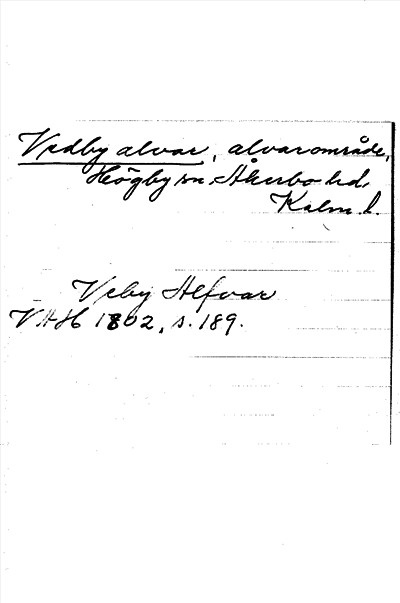 Vedby alvar, alvarområde,
Högby sn Åkerbo hd.
Kalm. l.
Veby Alfvar
VAH 1802, s. 189.